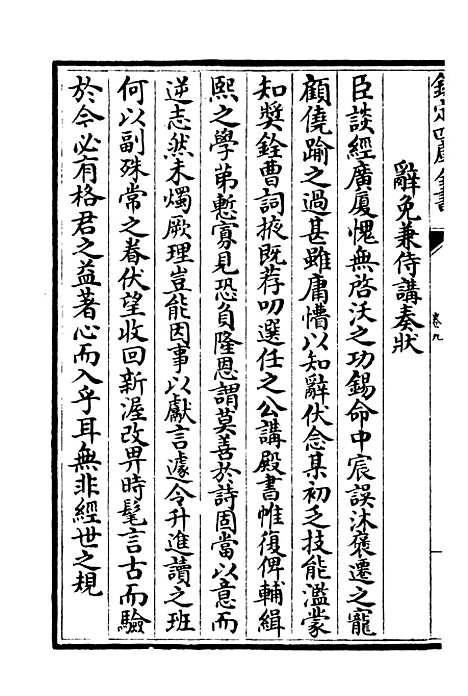 欽定四庫全書
卷九
辭免兼侍講奏狀
臣談經廣厦愧無啓沃之功錫命中宸誤沐褒遷之寵
顧僥踰之過甚雖庸懵以知辭伏念某初乏技能濫蒙
知奬銓曹詞掖既荐叨選任之公講殿書帷復俾輔緝
熙之學第慙寡見恐負隆恩謂莫善於詩固當以意而
逆志然未燭厥理豈能因事以獻言遽令升進讀之班
何以副殊常之眷伏望收回新渥改畀時髦言古而驗
於今必有格君之益著心而入乎耳無非經世之規